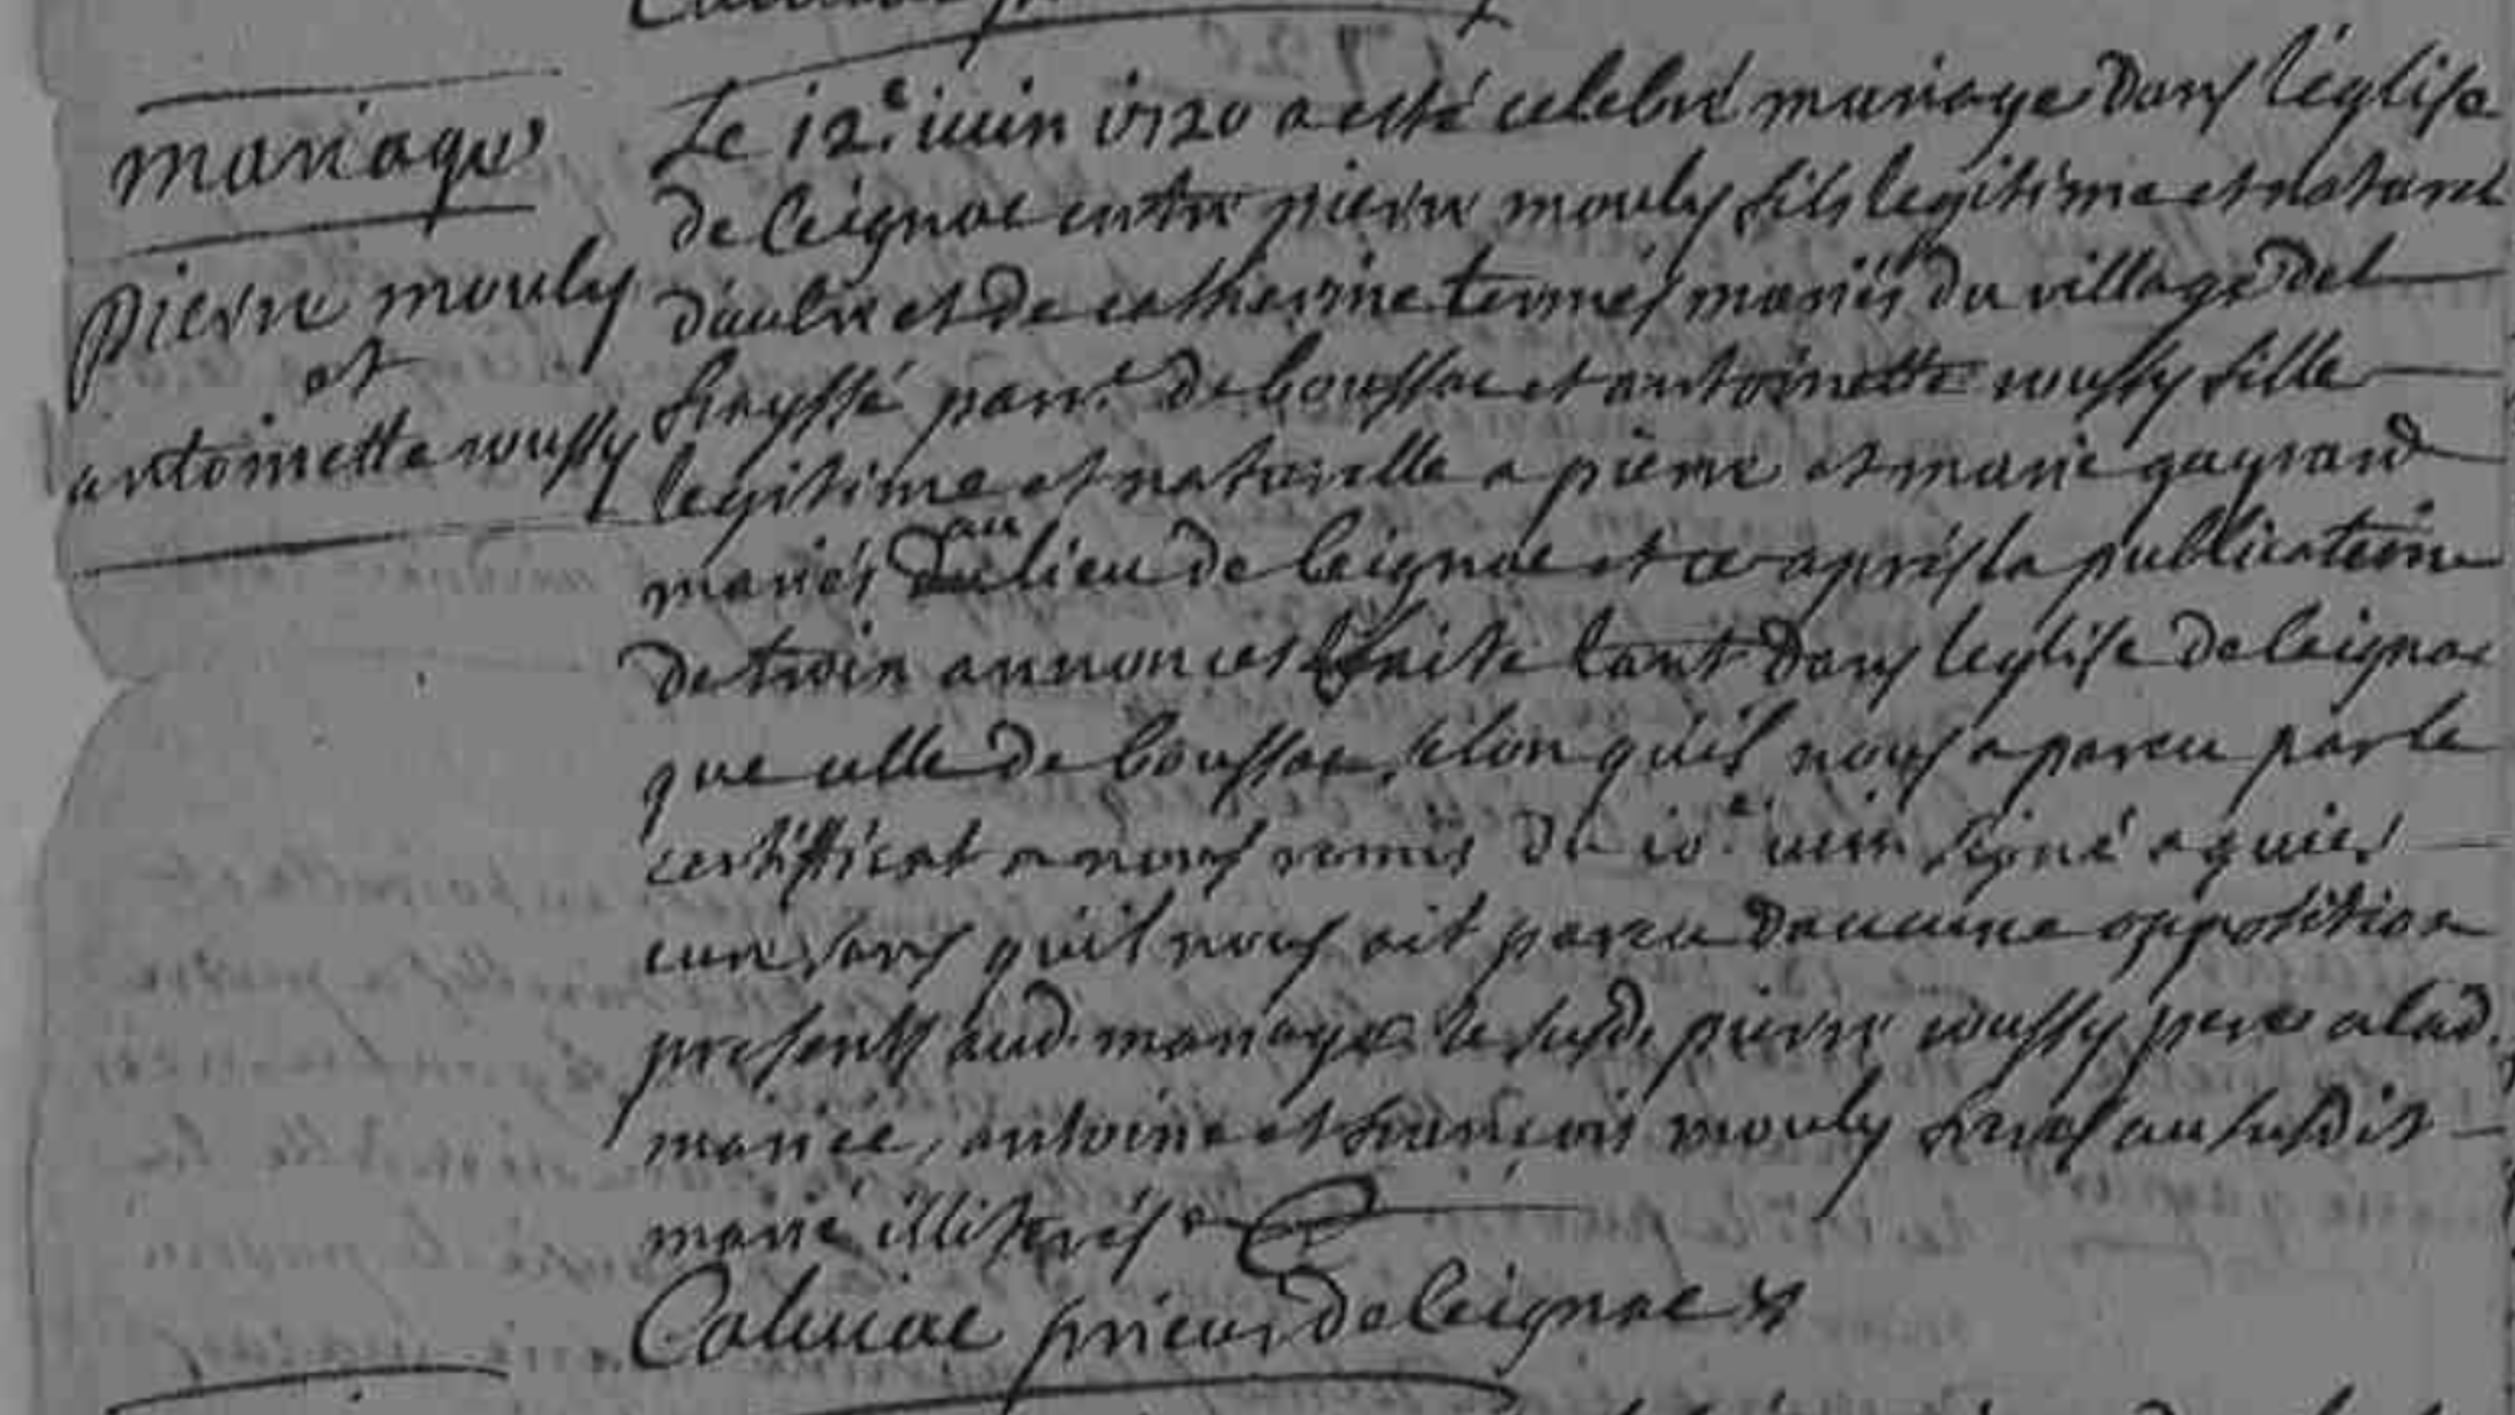 mariage
pierre mouly
et
antoinette roussy
Le 12e juin 1720 a esté celebré mariage dans l'église
de Ceignac entre pierre mouly fils legitime et naturel
d'autre et de catherine termes mariés du village del
parr.e de boussac et antoinette roussy fille
legitime et naturelle a pierre et marie gayraud
mariés au lieu de Ceignac et ce apres la publication
de trois annonces faite tant dans leglise de Ceignac
que celle de boussac, selon quil nous a pareu par le
certifficat a nous remis du 10e juin signé
curé sans quil nous ait pareu daucune opposition
presents aud. mariage le susd. pierre roussy pere a lad.
mariée, antoine et françois mouly freres au susdit
marié illiterés
Calmiac prieur de Ceignac